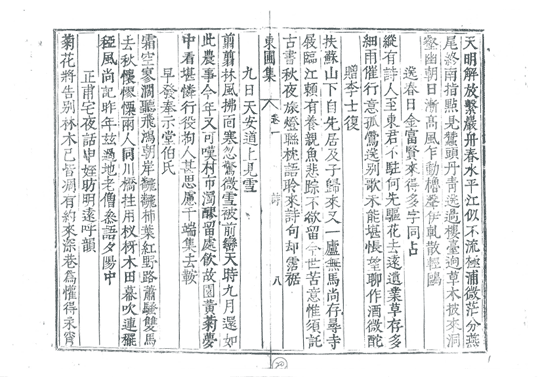 天明解放繫巖舟春水平江似不流極浦微茫分燕
尾終南指點見鰲頭丹青迭過樓臺迥草木披來洞
壑幽朝日漸高風乍動槽聲伊軋散輕鷗
送春日金富賢來得多字同占
縱有詩人至東君不駐何先驅花去遠遺業草存多
細雨催行意孤鶯送別歌未能堪悵望聊作酒微酡
贈李士復
扶蘇山下自先居及子歸來又一廬無馬尚存尋寺
屐臨江賴有養親魚悲踪不欲留今世苦意惟須託
古書秋夜旅燈聯枕語聆來詩句却霑裾
東圃集 卷一 詩 八
九日天安道上見雪
翦翦林風拂面寒忽驚微雪被前巒天時九月還如
此農事今年又可嘆村市濁醪留處飮故園黃菊夢
中看堪憐行役拘人甚思慮千端集去鞍
早發奉示堂伯氏
霜空寥濶聽飛鴻朝岸䑺䑺柿葉紅野路蕭騷雙馬
去秋懷慘慄兩人同川橋挂用杈枒木田暮吹連䆉
稏風尚記昨年玆過地老僧叅語夕陽中
正甫宅夜話申姪昉明遠呼韻
菊花將告別林木已皆凋有約來深巷爲懽得永宵